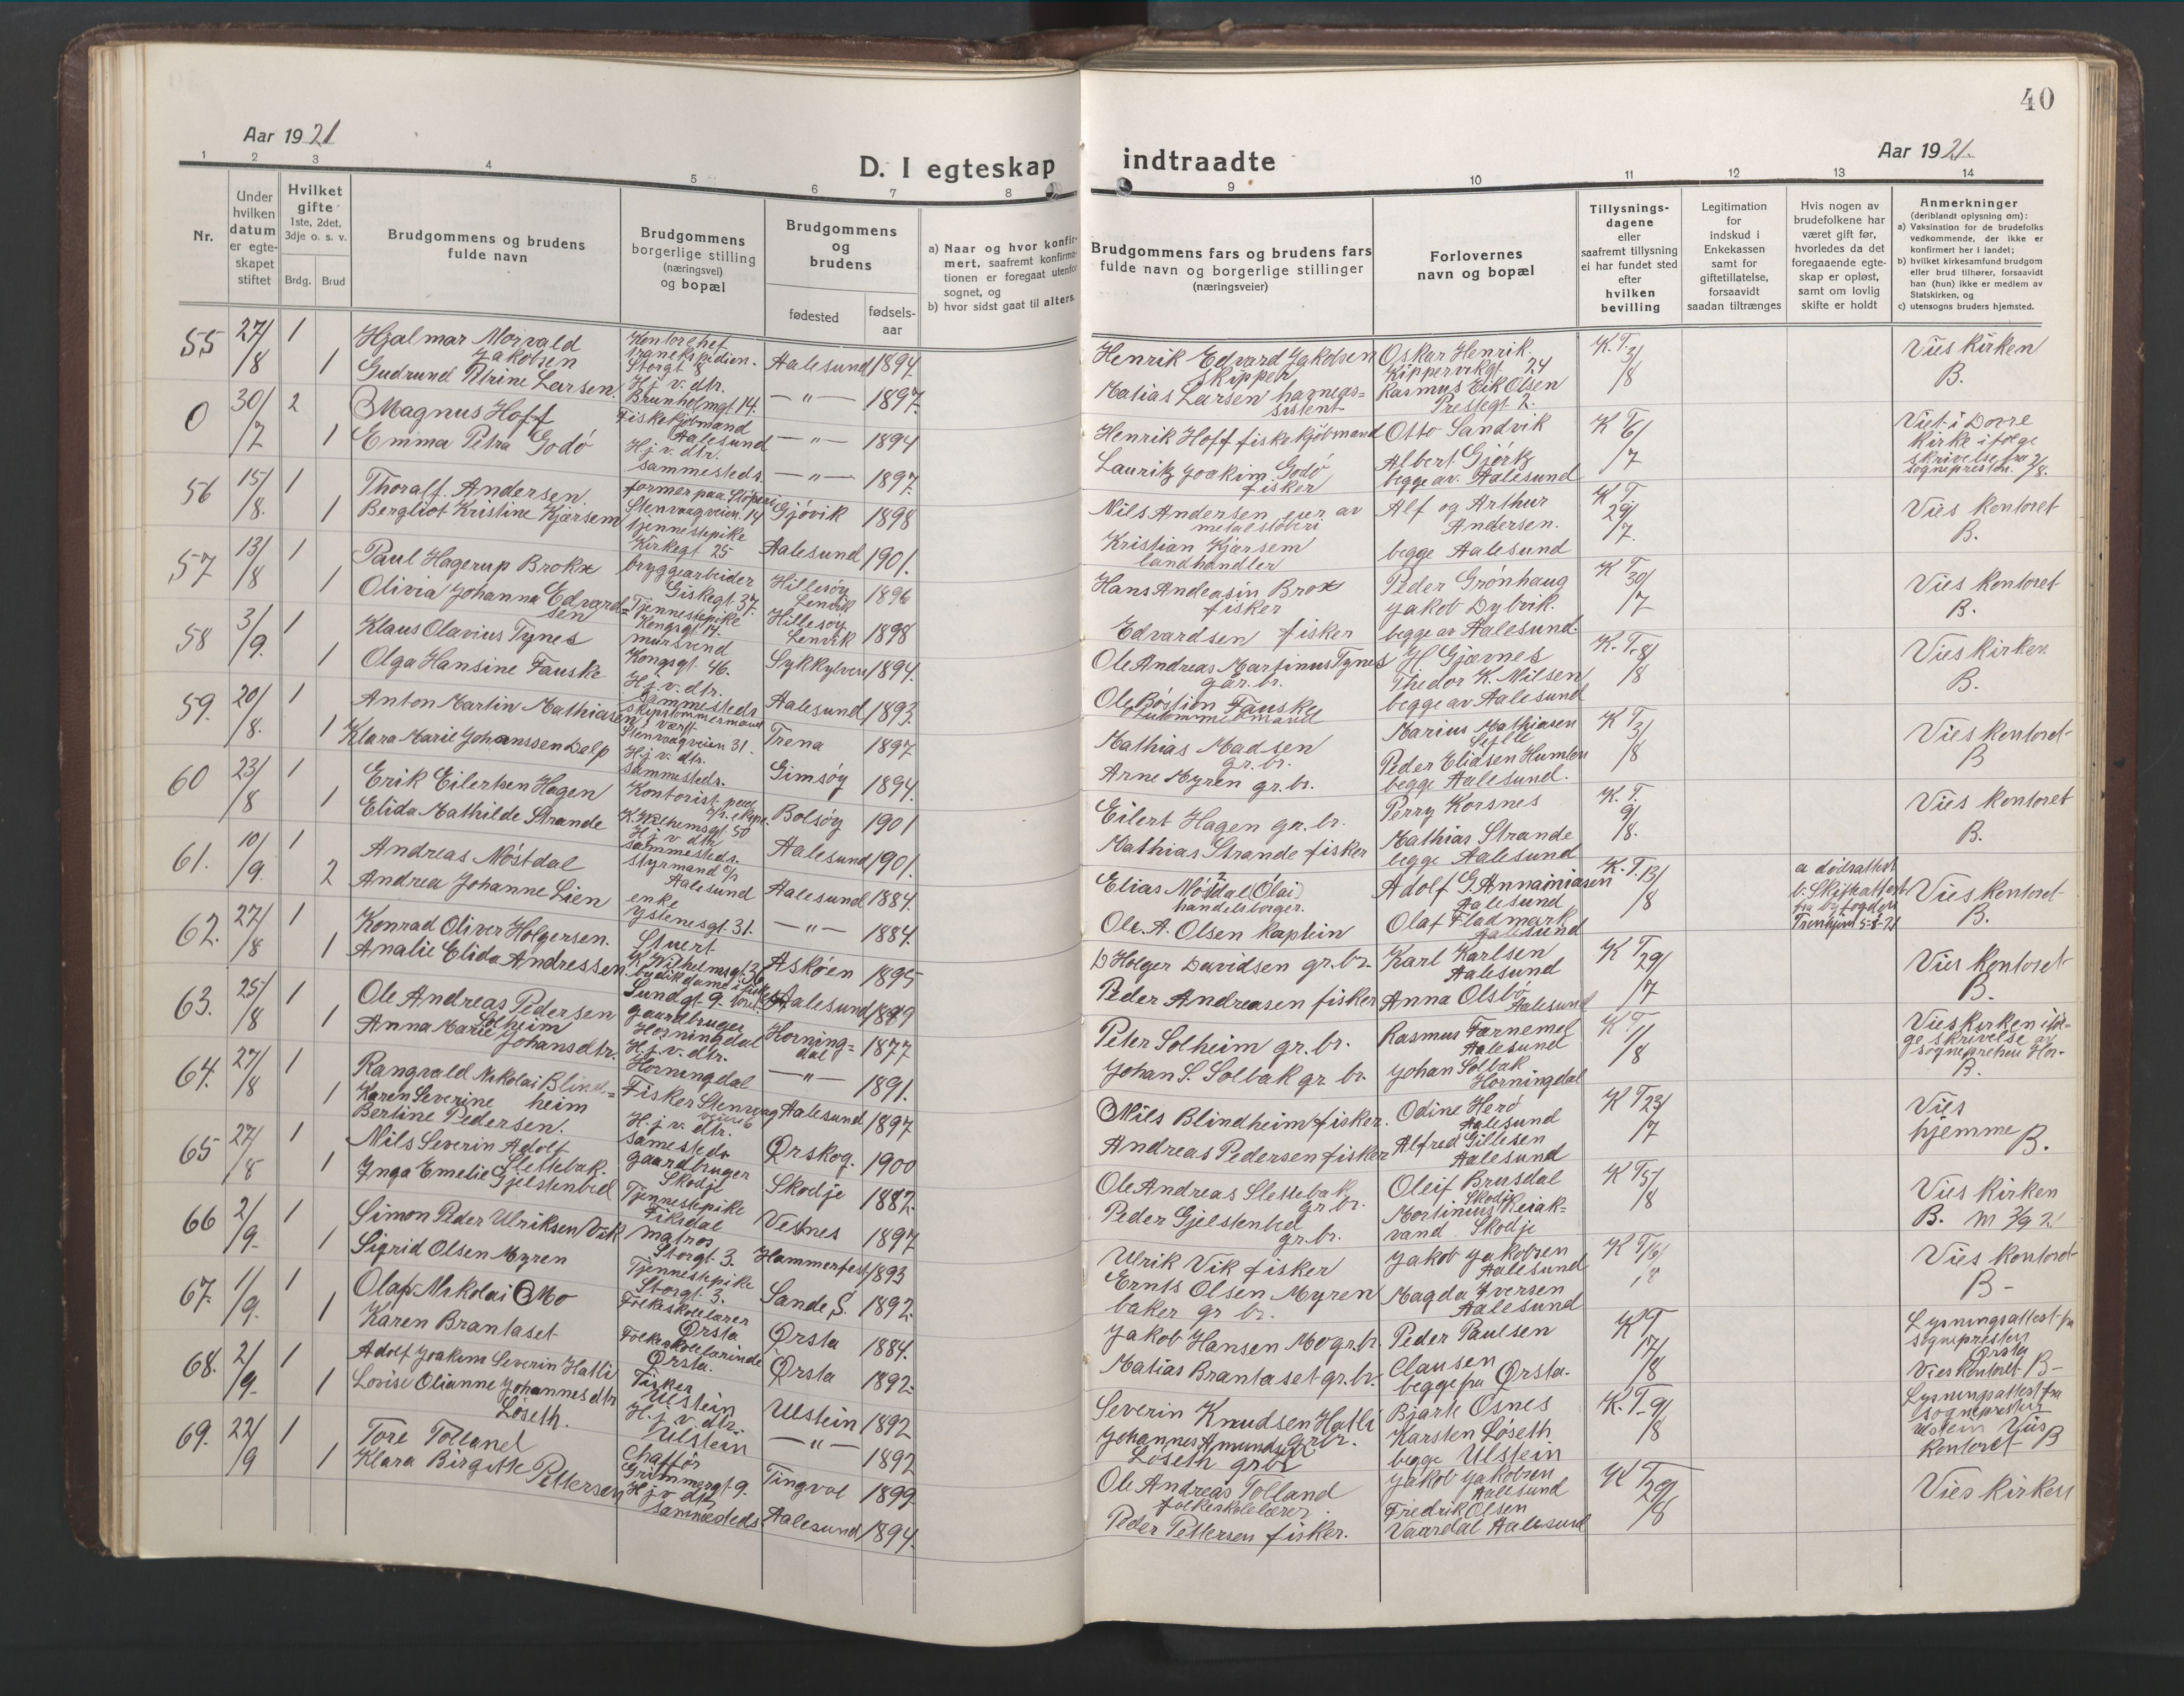 40
Aar 1921
Aar 1921.
D. I egteskap indtraadte
1
2
3
4
5
6
7
8
9
10
11
12
13
14
Nr.
Under
hvilken
datum
er egte-
skapet
stiftet
Hvilket
gifte
1ste, 2det,
3dje o. s. v.
Brdg.
Brud
Brudgommens og brudens
fulde navn
Brudgommens
borgerlige stilling
(næringsvei)
og bopæl
Brudgommens
og
brudens
fødested
fødsels-
aar
a) Naar og hvor konfir-
mert, saafremt konfirma-
tionen er foregaat utenfor
sognet, og
b) hvor sidst gaat til alters.
Brudgommens fars og brudens fars
fulde navn og borgerlige stillinger
(næringsveier)
Forlovernes
navn og bopæl
Tillysnings-
dagene
eller
saafremt tillysning
ei har fundet sted
efter
hvilken
bevilling
Legitimation
for
indskud i
Enkekassen
samt for
giftetillatelse,
forsaavidt
saadan tiltrænges
Hvis nogen av
brudefolkene har
været gift før,
hvorledes da det
foregaaende egte-
skap er opløst,
samt om lovlig
skifte er holdt
Anmerkninger
(deriblandt oplysning om):
a) Vaksination for de brudefolks
vedkommende, der ikke er
konfirmert her i landet;
b) hvilket kirkesamfund brudgom
eller brud tilhører, forsaavidt
han (hun) ikke er medlem av
Statskirken, og
c) utensogns bruders hjemsted.
55 27/8 1 Hjalmar Morvald
Jakobsen
Storgt. 8
Aalesund 1894
Henrik Edvard Jakobsen
skipper
Oskar Henrik
Kippervikgt. 24
K. T. 3/8
Vies kirken
B.
1 Gudrund Petrine Larsen.
H. j. v. dtr.
Brunholmgt. 14.
— „ — 1897.
Matias Larsen havneas=
sistent
Rasmus Eik Olsen
Prestegt. 2.
0 30/7 2 Magnus Hoff
Fiskekjøbmand
Aalesund
— „ — 1894
Henrik Hoff fiskekjøbmand
Otto Sandvik
K T 6/7
Viet i Dovre
kirke ifølge
skrivelse fra
sognepresten. 2/8.
1 Emma Petra Godø
H. j. v. dtr.
sammesteds.
— „ — 1897.
Lauritz Joakim Godø
fisker
Albert Gjørtz
begge av Aalesund
56 15/8. 1 Thoralf Andersen.
former paa Støperi
Stenvaagveien. 14
Gjøvik 1898
Nils Andersen eier av
metalstøberi
Alf og Arthur
Andersen.
K T. 29/7.
Vies kontoret
B.
1 Bergliot Kristine Kjærsem
tjennestepike
Kirkegt 25
Aalesund 1901.
Kristian Kjærsem
landhandler
begge Aalesund
57 13/8 1 Paul Hagerup Brokx
bryggearbeider
Giskegt. 37.
Hillesøy
Lenvik 1896
Hans Andreasin Brox
fisker
Peder Grønhaug
K T 30/7
Vies kontoret
B.
1 Olivia Johanna Edvard=
sen
Tjennestepike
Kongsgt. 14.
Hillesøy
Lenvik 1898
Edvardsen fisker
Jakob Dybvik.
begge av Aalesund.
58 3/9. 1 Klaus Olavius Tynes
mursvend
Kongsgt. 46.
Sykkylven 1894.
Ole Andreas Martinus Tynes
gar. br.
H. Gjærnes
K. T. 8/8
Vies kirken.
B.
1 Olga Hansine Fauske
H. j. v. dtr.
sammesteds
Aalesund 1893.
Ole Bøstian Fauske
Thedor K. Nilsen
begge av Aalesund
59. 20/8. 1 Anton Martin Mathiasen
skipstømmermand
Stenvaagveien 31.
Trena 1897
Mathias Madsen
gr. br.
Marius Mathiasen
K T. 3/8
Vies kontoret
B
1 Klara Marie Johanssen Dalp
H. j. v. dtr.
sammesteds.
Gimsøy 1894.
Arne Myren gr. br.
Peder Elidsen Humlen
begge Aalesund.
60 23/8 1 Erik Eilertsen Hagen
Kontorist
K. Wilhemsgt 50
Bolsøy 1901
Eilert Hagen gr. br.
Perry Korsnes
K. T. 9/8.
Vies kontoret
B.
1 Elida Mathilde Strande
H. j. v. dtr
sammesteds.
Aalesund 1901.
Mathias Strande fisker
Mathias Strande
begge Aalesund
61. 10/9. 1 Andreas Møstdal
styrmand
Aalesund
Aalesund 1884.
Elias Møstdal (Olai)
handelsborger.
Adolf G. Annaniasen
Aalesund
K. T. 13/8
a dødsattest
b. Skifteattest
fra byfogden
Tronhjem 5-8-21
Vies kontoret
B.
2 Andrea Johanne Lien
enke
Ystenesgt. 31.
— „ — 1884.
Ole. A. Olsen kaptein
Olaf Fladmark
Aalesund
62. 27/8 1 Konrad Oliver Holgersen.
Stuert
K. Wilhelmsgt. 36
Askøen 1895
D Holger Davidsen gr. br.
Karl Karlsen
Aalesund
K T 29/7
Vies kontoret
B.
1 Analie Elida Andressen
Sundgt. 9.
Aalesund 1899
Peder Andreasen fisker
Anna Olsbø
Aalesund
63. 25/8 1 Ole Andreas Pedersen
Solheim
gaardbruger
Horningdal
Horning=
dal 1877
Peter Solheim gr. br.
Rasmus Færnemel
Aalesund
K T. 1/8
Vies kirken iføl=
ge skrivelse av
B.
1 Anna Marie
Johansdtr.
H. j. v. dtr.
Horningdal
— „ — 1891.
Johan S. Solbak gr. br.
Johan Solbak
Horningdal
64. 27/8 1 Rangvald Nikolai Blind=
heim
Fisker Stenvaag
veien 6
Aalesund 1897
Nils Blindheim fisker.
Odine Herø
Aalesund
K T 23/7
Vies
hjemme B.
1 Karen Severine
Bertine Pedersen.
H. j. v. dtr.
samesteds
Ørskog. 1900
Andreas Pedersen fisker
Alfred Gillesen
Aalesund
65 27/8 1 Nils Severin Adolf
Slettebak.
gaardbruger
Skodje
Skodje 1882.
Ole Andreas Slettebak
gr. br.
Oleif Brusdal
Skodje
K T 5/8
Vies kirken
B. m 3/9 21
1 Inga Emelie Gjelstenbed
Tjennestepike
Fiksdal
Vestnes 1897
Peder Gjelstenbed
gr. br.
Mortinius Reiak=
vand Skodje
66 2/9- 1 Simon Peder Ulriksen Vik
matros
Storgt. 3.
Hammerfest 1893
Ulrik Vik fisker
Jakob Jakobsen
Aalesund
K T 16/8
Vies kontoret
B -
1 Sigrid Olsen Myren
Tjennestepike
Storgt. 3.
Sande, S. 1892.
Ernts Olsen Myren
baker gr br.
Magda Iversen
Aalesund
67. 1/9. 1 Olaf Nikolai Mo
Folkeskolelærer
Ørsta
Ørsta 1884.
Jakob Hansen Mo gr. br.
Peder Paulsen
K T 17/8
Lysningsattest fra
sognepresten
Ørsta
Vies kontoret B-
1 Karen Brantaset
Folkeskolelærinde
Ørsta.
Ørsta 1892.
Matias Brantaset gr. br.
Clausen
begge fra Ørsta.
68. 2/9- 1 Adolf Joakim Severin Hatli
Fisker
Ulstein
Ulstein 1892
Severin Knudsen Hatli
gr. br.
Bjarte Osnes
K. T- 9/8
Lysningsattest fra
sognepresten
Ulstein Vies
kontoret B
1 Lovise Olianne Johannesdtr
Løseth.
H. j. v. dtr.
Ulstein
— „ — 1892
Johannes Amundsen
Løseth grbr
Karsten Løseth
begge Ulstein
69. 22/9 1 Tore Tolland
Chaffør
Grimmergt 9.
Tingvol 1899
Ole Andreas Tolland
folkeskolelærer.
Jakob Jakobsen
Aalesund
K T 29/8
Vies kirken
1 Klara Birgitte Pettersen
H j v dtr
sammesteds.
Aalesund 1894.
Peder Pettersen fisker.
Fredrik Olsen
Vaardal Aalesund